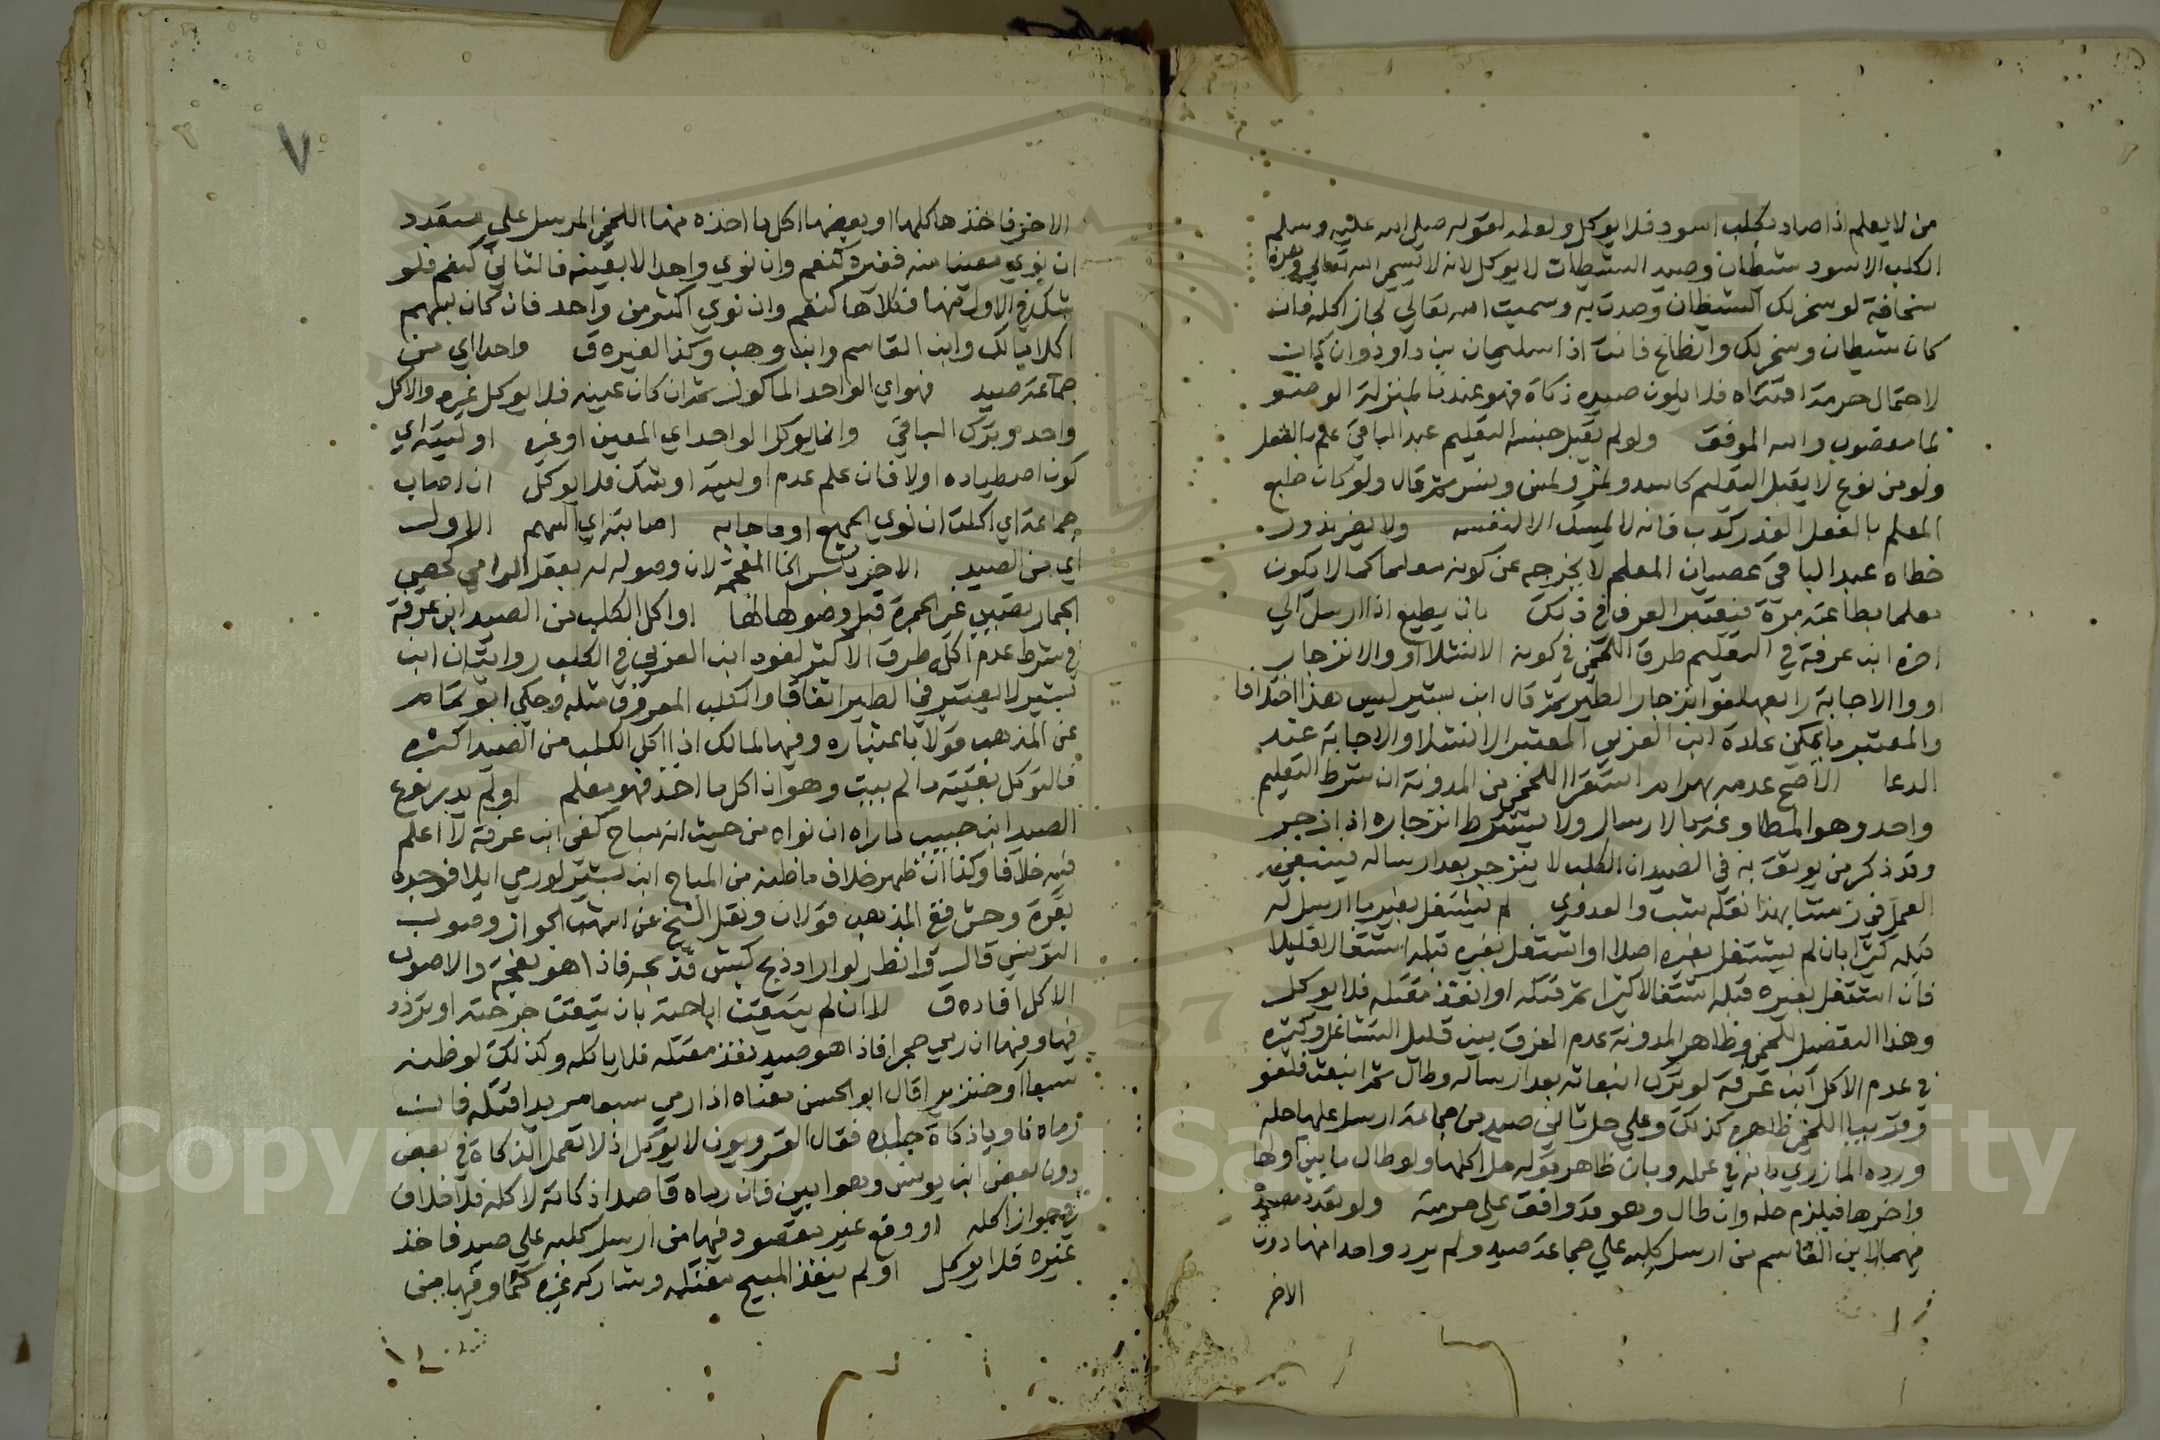 من لا يعلم اذا صاد بكلب اسود فلا يوكل ولعله لقوله صلى الله عليه وسلم
الكلب الاسود شيطان وصيد الشيطان لا يوكل لانه لا يسمي الله تعالي وهذه
سخافة لو سخر لك الشيطان وصدت به وسميت الله تعالي لجاز اكله فان
كان شيطان وسخر لك وانطاع فانت اذا سليمان بن داود وان كانت
لاحتمال حرمة اقتناه فلا يكون صيده ذكاة فهو عندنا بمنزلة الوضو
بما مغصوب والله الموفق ولو لم يقبل جنسه التعليم عبد الباقي علم بالفعل
ولو من نوع لا يقبل التعليم كاسد ونمر ونمس ونسر ثم قال ولو كان طبع
المعلم بالفعل الغدر كدب فانه لا يمسك الا لنفسه ولا يضر نذور
خطاه عبد الباقي عصيان المعلم لا يخرجه عن كونه معلما كما لا يكون
معلما بطاعته مرة فيعتبر العرف في ذلك بان يطيع اذا ارسل الي
اخره ابن عرفة في التعليم طرق اللخمي في كونه الانشلا او والانزجار
او والاجابة رابعها لغو انزجار الطير ثم قال ابن بشير ليس هذا اختلافا
والمعتبر ما يمكن عادة ابن العربي المعتبر الانشلا والاجابة عند
الدعا الاصح عدمه بهرام استقرا اللخمي من المدونة ان شرط التعليم
واحد وهو المطاوعة بالارسال ولا يشترط انزجاره اذا زجر
وقد ذكر من يوثق به في الصيد ان الكلب لا ينزجر بعد ارساله فينبغي
العمل في زمننا بهذا نقله شب والعدوي لم يشتغل بغير ما ارسل له
قبله كثيرا بان لم يشتغل بغيره اصلا او اشتغل بغيره قبله اشتغالا قليلا
فان اشتغل بغيره قبله اشتغالا كثيرا ثم قتله او انفذ مقتله فلا يوكل
وهذا التفصيل للخمي وظاهر المدونة عدم الفرق بين قليل التشاغل وكثيره
في عدم الاكل ابن عرفة لو ترك انبعاثه بعد ارساله وطال ثم انبعث فلغو
وقريبا اللخمي ظاهره كذلك وعلي حل ثاني صيد من جماعة ارسل عليها حله
ورده المازري بانه في عمله وبان ظاهر قوله حل اكلها ولو طال ما بين اولها
واخرها فيلزم حله وان طال وهو قد وافق علي حرمته ولو تعدد مصيده
فيهما لابن القاسم من ارسل كلبه علي جماعة صيد ولم يرد واحدا منها دون
الاخر
٧
الاخر فاخذها كلها او بعضها اكل ما اخذه منها اللخمي المرسل علي متعدد
ان نوي معينا منه فغيره كنعم وان نوي واحدا لا بعينه فالثاني كنعم فلو
شك في الاول منهما فكلاهما كنعم وان نوي اكثر من واحد فان كان بينهم
اكلا لمالك وابن القاسم وابن وهب وكذا لغيره ق واحدا اي من
جماعة صيد فهو اي الواحد الماكول ثم ان كان عينه فلا يوكل غيره والا اكل
واحد وترك الباقي وانما يوكل الواحد اي المعين او غيره اوليته اي
كون اصطياده اولا فان علم عدم اوليته او شك فلا يوكل ان اصاب
جماعة اي اكلت ان نوي الجميع او ما جا به اصابته اي السهم الاول
اي من الصيد الاخر بكسر الخا المعجمة لان وصوله له بفعل الرامي كحصي
الجمار يصيب غير الجمرة قبل وصولها لها او اكل الكلب من الصيد ابن عرفة
في شرط عدم اكله طرق الاكثر لغوه ابن العربي في الكلب روايتان ابن
بشير لا يعتبر في الطير اتفاقا والكلب المعروف مثله وحكي ابو تمام
عن المذهب قولا باعتباره وفيها لمالك اذا اكل الكلب من الصيد اكثره
فالتوكل بقيته ما لم يبيت وهو ان اكل ما اخذ فهو معلم او لم يدر نوع
الصيد ابن حبيب ما راه ان نواه من حيث انه مباح كفي ابن عرفة لا اعلم
فيه خلافا وكذا ان ظهر خلاف ما ظنه من المباح ابن بشير لو رمي ايلا فوجده
بقرة وحش ففي المذهب قولان ونقل الشيخ عن اشهب الجواز وصوب
التونسي قال ق وانظر لو اراد ذبح كبش فذبحه فاذا هو نعجة والاصوب
الاكل افاده ق لا ان لم يتيقن اباحته بان تيقن حرمته او تردد
فيها وفيها ان رمي حجرا فاذا هو صيد نفذ مقتله فلا ياكله وكذلك لو ظنه
سبعا او خنزيرا قال ابو الحسن معناه اذا رمي سبعا مريدا قتله فان
رماه ناويا ذكاة جلده فقال القرويون لا يوكل اذ لا تعمل الذكاة في بعض
دون بعض ابن يونس وهو ابين فان رماه قاصدا ذكاته لاكله فلا خلاف
في جواز اكله او وقع غير مقصود فيها من ارسل كلبه علي صيد فاخذ
غيره فلا يوكل او لم ينفذ المبيح مقتله وشاركه غيره كما وفيها من